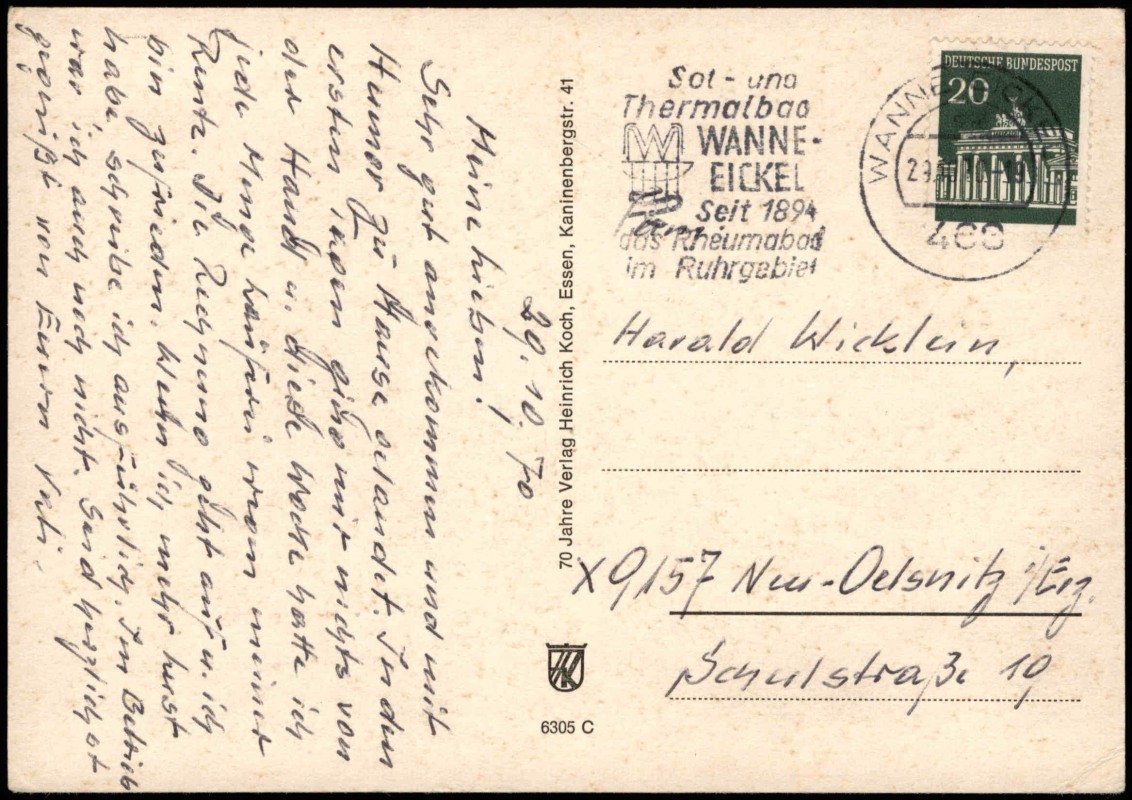 29.10.70
Meine Lieben!
Sehr gut angekommen und mit
Humor zu Hause gelandet. In den
ersten Tagen ging mir nichts von
der Hand u. diese Woche hatte ich
jede Menge Lauferei wegen meiner
Rente. Die Rechnung geht auf u. ich
bin zufrieden. Wenn ich mehr Lust
habe, schreibe ich ausführlich. Im Betrieb
war ich auch noch nicht. Seid herzlichst
gegrüßt von Eurem Vati.
70 Jahre Verlag Heinrich Koch, Essen, Kaninenbergstr. 41
6305 C
Sol- und
Thermalbad
WANNE-
EICKEL
Seit 1894
das Rheumabad
im Ruhrgebiet
WANNE-EICKEL
468
DEUTSCHE BUNDESPOST
20
Harald Wicklein,
X9157 Neu-Oelsnitz i/Erz.
Schulstraße 19